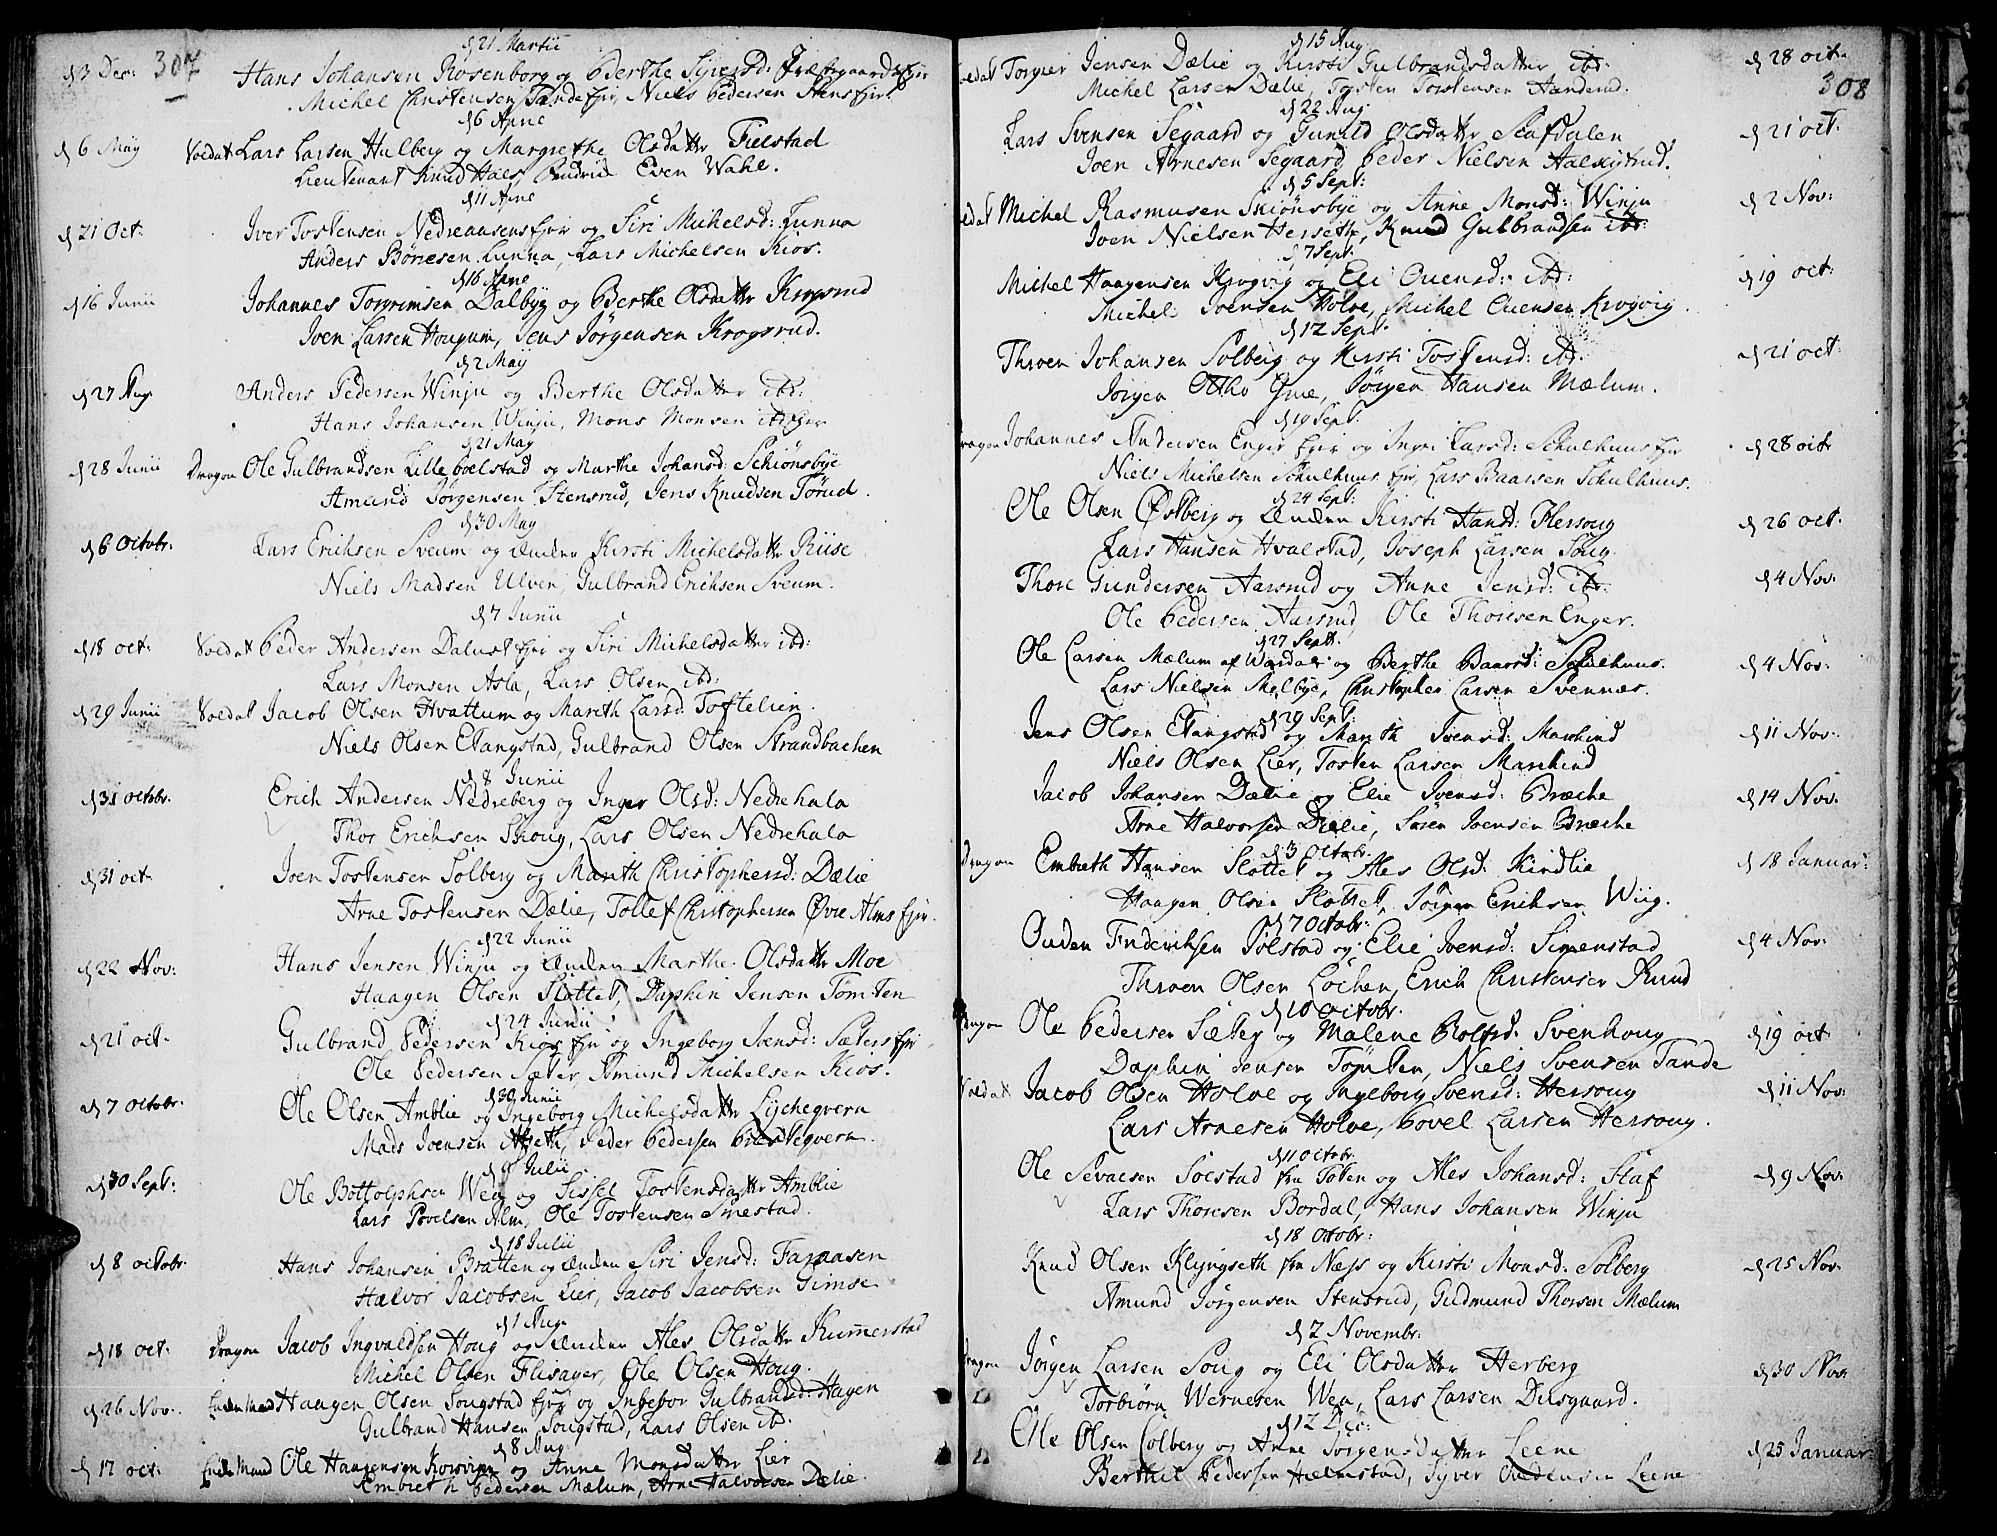 307
d 21 Martii
d 3 Dec: Hans Johansen Rosenborg og Berthe Siversd: Præstgaardsejer
Michel Christensen Tande ejer, Niels Pedersen Stensejer
d 6 April
d 6 Maij Soldat Lars Larsen Hulberg og Margrethe Olsdatter Fielstad
Lieutenant Knud Hals, Even Wahl.
d 11 April
d 21 Oct: Iver Tostensen Nedreaasens ejer og Siri Michelsd: Lunna
Anders Børresen Lunna, Lars Michelsen Kios.
d 16 April
d 16 Junii Johannes Torgrimsen Dalbye og Berthe Olsdatter Krogsrud
Joen Larsen Hougum, Jens Jörgensen Krogsrud.
d 2 Maij
d 27 Aug. Anders Pedersen Winju og Berthe Olsdatter ibd:
Hans Johansen Winju, Mons Monsen ibd ejer
d 21 May
d 28 Junii Dragon Ole Gulbrandsen Lilleboelstad og Marthe Johansd: Schiönsbye
Amund Jörgensen Stensrud, Jens Knudsen Törud.
d 30 May
d 6 Octobr: Lars Erichsen Sveum og Enken Kirsti Michelsdatter Riise
Niels Madsen Ulven, Gulbrand Erichsen Sveum.
d 7 Junii
d 18 oct: Soldat Peder Andersen Dalust ejer og Siri Michelsdatter ibd:
Lars Monsen Asla, Lars Olsen ibd:
d 29 Junii Soldat Jacob Olsen Hvattum og Marith Larsd: Toftelien.
Niels Olsen Etangstad, Gulbrand Olsen Strandbachen
d 8 Junii
d 31 octobr. Erich Andersen Nedreberg og Inger Olsd: Nedrehala
Thor Erichsen Skoug, Lars Olsen Nedrehala
d 31 oct. Joen Tostensen Solberg og Marith Christophersd: Dælie
Arne Tostensen Dælie, Tollef Christophersen Övre Alms ejer.
d 22 Junii
d 22 Nov: Hans Jensen Winju og Enken Marthe Olsdatter Moe
Haagen Olsen Slottet, Daphin Jensen Tömten
d 24 Junii
d 21 oct. Gulbrand Pedersen Kios ejer og Ingeborg Svensd: Sæters ejer
Ole Pedersen Sæter, Amund Michelsen Kios.
d 30 Junii
d 7 Octobr: Ole Olsen Amblie og Ingeborg Michelsdatter Lychegvern
Mads Joensen, Peder Pedersen
d 9 Julii
d 30 Sept: Ole Bottolphsen Wea og Sissel Tostensdatter Amblie
Lars Povelsen Alm, Ole Tostensen Smestad.
d 18 Julii
d 8 octobr. Hans Johansen Bratten og Enken Siri Jensd: Farmasen
Halvor Jacobsen Lier, Jacob Jacobsen Gimse
d 1 Aug.
d 18 oct: Dragon Jacob Ingvaldsen Houg og Enken Ales Olsdatter Kummerstad
Michel Olsen Flisager, Ole Olsen Houg.
d 26 Nov. Enke Mand Haagen Olsen Sougstad ejer og Ingebor Gulbrandsd: Hagen
Gulbrand Hansen Sougstad, Lars Olsen ibd.
d 8 Aug
d 17 oct: Enke Mand Ole Haagensen og Anne Monsdatter Lier
Embreth Pedersen Mælum, Arne Halvorsen Dælie.
308
d 15 Aug
Soldat Torgier Jensen Dælie og Kirsti Gulbrandsdatter ibd: d 28 oct.
Michel Larsen Dælie, Tosten Tostensen Handerud.
d 22 Aug:
Lars Svensen Segaard og Gunild Olsdatter Stafdalen d 21 oct.
Joen Arnesen Segaard, Peder Nielsen
d 5 Sept:
Soldat Michel Rasmusen Skiönsbye og Anne Monsd: Winju d 2 Nov:
Joen Nielsen Herseth, Knud Gulbrandsen ibd:
d 7 Sept.
Michel Haagensen Krogvig og Eli Ouensd: ibd: d 19 oct:
Michel Joensen Holve, Michel Ouensen Krogvig.
d 12 Sept.
Throen Johansen Solberg og Kirsti Tostensd: ibd. d 21 oct:
Jörgen Otto Grue, Jörgen Hansen Mælum.
d 19 Sept.
Dragon Johannes Andersen Enger ejer og Ingri Larsd: Schulhuus ejer d 28 oct
Niels Michelsen Schulhuus ejer, Lars Baarsen Schulhuus.
d 24 Sept:
Ole Olsen Östberg og Enken Kirsti Hansd: Hersoug d 26 oct.
Lars Hansen Hvalstad, Joseph Larsen Soug.
Thore Gundersen Aarsrud og Anne Jensd: ibd. d 4 Nov.
Ole Pedersen Aarsrud, Ole Thoresen Enger.
d 27 Sept.
Ole Larsen Mælum af Wardal og Berthe Baarsd: Schulhuus. d 4 Nov:
Lars Nielsen Melbye, Christopher Larsen Svennæs.
d 29 Sept:
Jens Olsen Etangstad og Marith Svensd: Marchind d 11 Nov:
Niels Olsen Lier, Tosten Larsen Marchind
Jacob Johansen Dælie og Elie Svensd: Bræche d 14 Nov:
Arne Halvorsen Dælie, Sören Joensen Bræche
d 3 Octobr.
Dragon Embreth Hansen Slottet og Ales Olsd: Kindlie d 18 Januar:
Haagen Olsen Slottet, Jörgen Erichsen Wiig.
d 7 Octobr.
Ouden Friderichsen Sölstad og Elie Joensd: Simenstad d 4 Nov:
Throen Olsen Löchen, Erich Christensen Ruud
d 10 Octobr.
Dragon Ole Pedersen Sætey og Malene Rolfsd: Svenhoug d 19 oct
Daphin Jensen Tömten, Niels Svensen Tande
Soldat Jacob Olsen Holve og Ingeborg Svensd: Hersoug d 11 Nov:
Lars Arnesen Holve, Povel Larsen Hersoug.
d 11 Octobr.
Ole Sevaesen Soelstad fra Toten og Ales Johansd: Staf d 9 Nov:
Lars Thoresen Bordal, Hans Johansen Winju
d 18 Octobr:
Knud Olsen Klyngseth fra Næss og Kirsti Monsd: Solberg d 25 Nov.
Amund Jörgensen Stensrud, Gudmund Thorsen Mælum
d 2 Novembr:
Dragon Jörgen Larsen Soug og Eli Olsdatter Herberg d 30 Nov:
Torbiörn Wernesen Wea, Lars Larsen Diisgaard.
d 12 Dec:
Ole Olsen Colberg og Anne Jörgensdatter Leene d 25 Januar
Berthel Pedersen Hælmstad, Syver Oudensen Leene